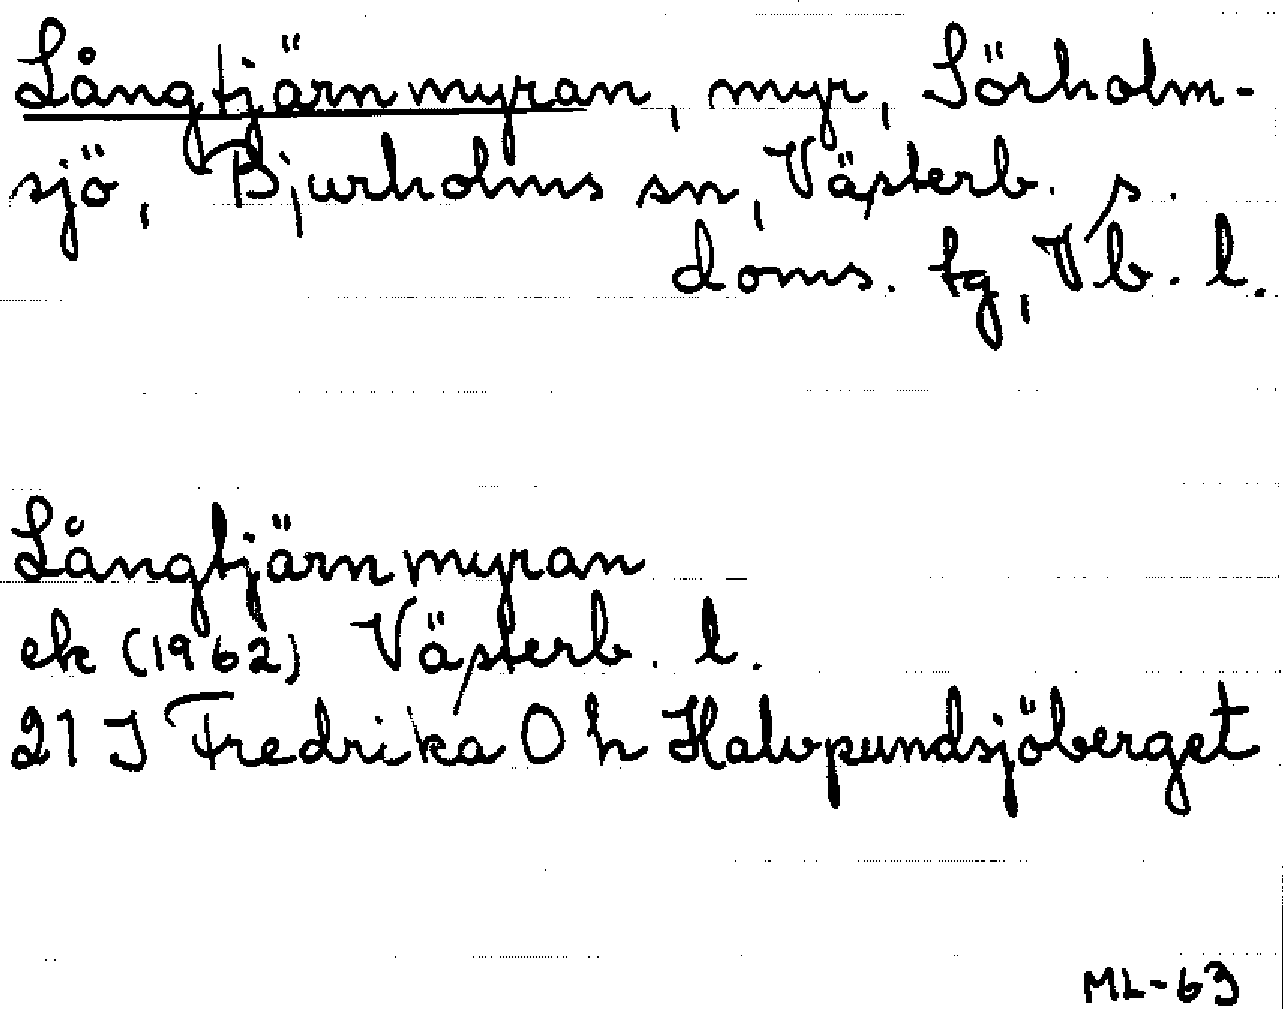 Långtjärnmyran, myr, Sörholm-
sjö, Bjurholms sn, Västerb. s.
doms. tg, Vb. l.
Långtjärnmyran
ek (1962) Västerb. l.
21 J Fredrika O h Halvpundsjöberget
ML-63